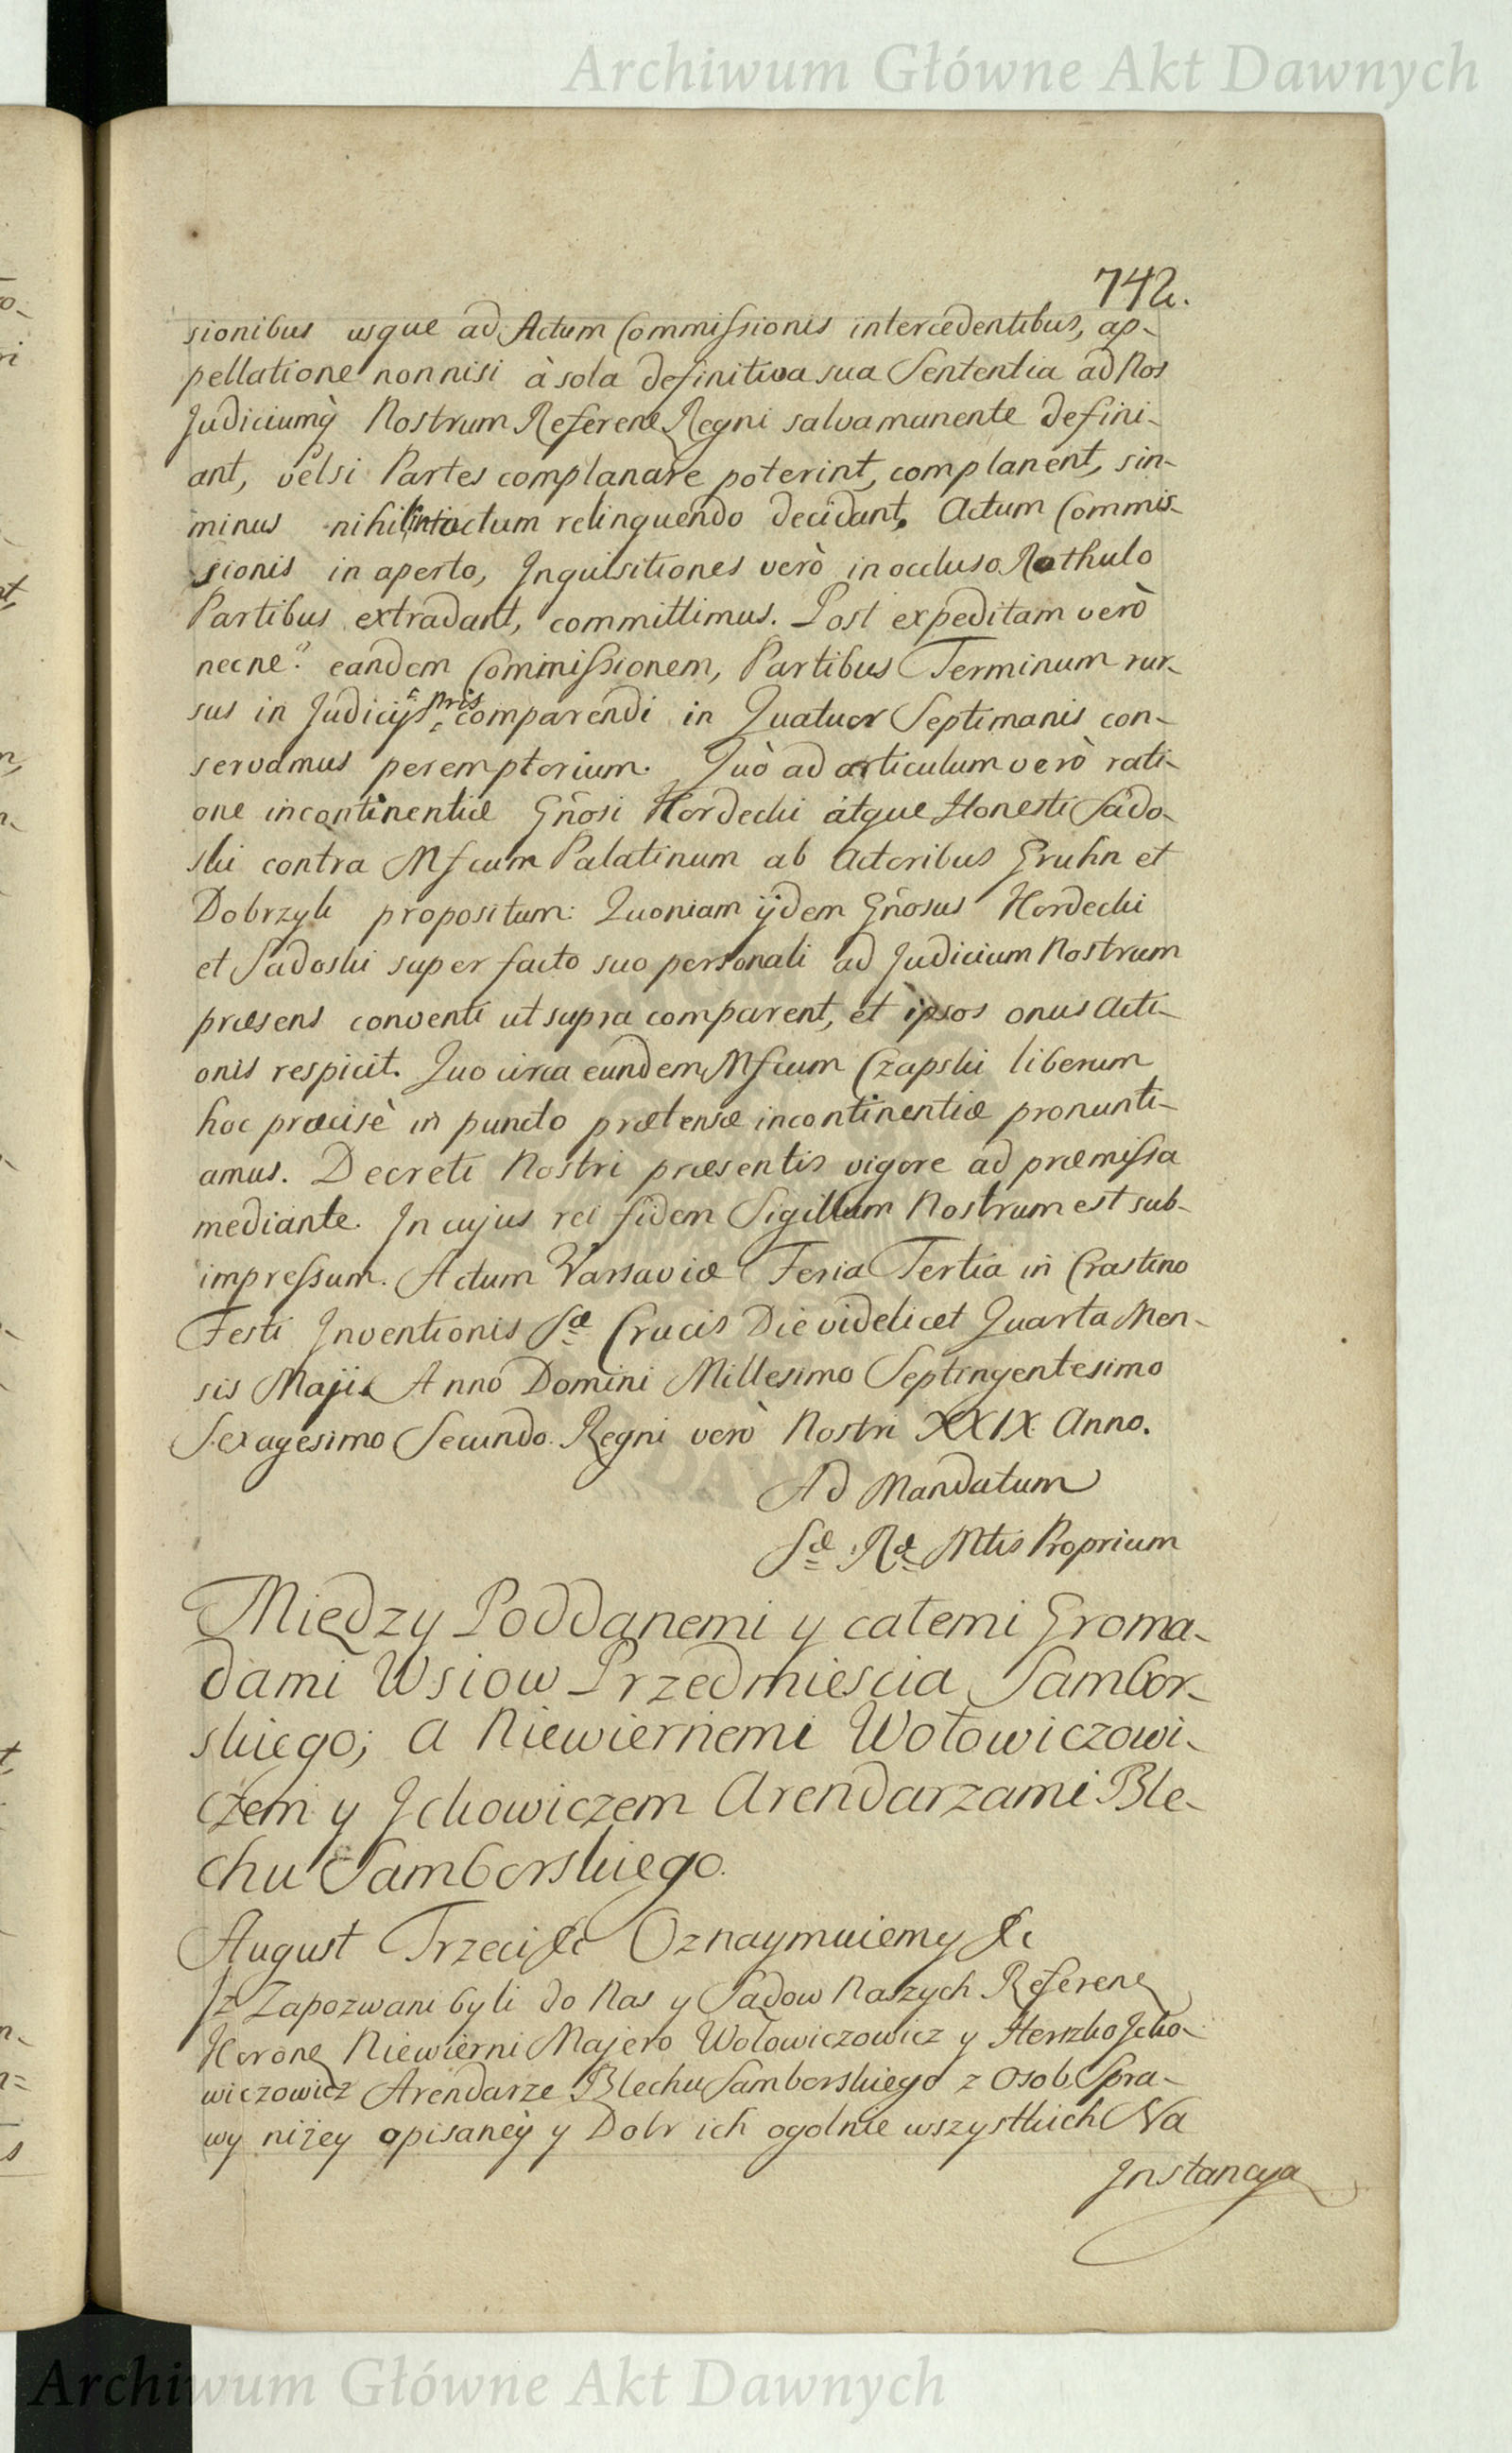 Archiwum Główne Akt Dawnych
742.
sionibus usque ad Actum Commissionis intercedentibus, ap-
pellatione nonnisi à sola definitiva sua Sententia ad Nos
Judiciumq̀ Nostrum Referen Regni salva manente defini-
ant, vel si Partes complanare poterint, complanent, sin-
minus nihil intactum relinquendo decidant. Actum Commis-
sionis in aperto, Inquisitiones verò in occluso Rothulo
Partibus extradant, committimus. Post expeditam verò
necne? eandem Commissionem, Partibus Terminum rur-
sus in Judicijs nris comparendi in Quatuor Septimanis con-
servamus peremptorium. Quò ad articulum verò rati-
one incontinentiæ Gñosi Hordecki atque Honesti Sado-
ski contra Mfcum Palatinum ab Actoribus Gruhn et
Dobrzyk propositum: Quoniam ijdem Gñosus Hordecki
et Sadoski super facto suo personali ad Judicium Nostrum
præsens conventi ut supra comparent, et ipsos onus Acti-
onis respicit. Quo circa eundem Mfcum Czapski liberum
hoc præcisè in puncto prætensæ incontinentiæ pronunti-
amus. Decreti Nostri præsentis vigore ad præmissa
mediante. In cujus rei fidem Sigillum Nostrum est sub-
impressum. Actum Varsaviæ Feria Tertia in Crastino
Festi Inventionis Sæ Crucis Die videlicet Quarta Men-
sis Maji Anno Domini Millesimo Septingentesimo
Sexagesimo Secundo. Regni verò Nostri XXIX Anno.
Ad Mandatum
Sæ Ræ Mtis Proprium
Między Poddanemi y całemi Groma-
dami Wsiow Przedmiescia Sambor-
skiego; a Niewiernemi Wołowiczowi-
czem y Ickowiczem Arendarzami Ble-
chu Samborskiego.
August Trzeci &c Oznaymuiemy &c
Iż Zapozwani byli do Nas y Sądow Naszych Referen
Koron Niewierni Majero Wołowiczowicz y Herszko Icko-
wiczowicz Arendarze Blechu Samborskiego z Osob Spra-
wy niżey opisaney y Dobr ich ogolnie wszystkich Na
Instancyą
Archiwum Główne Akt Dawnych